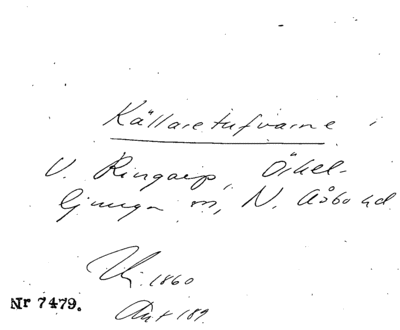 Källaretufvarne i
V. Ringarp, Örkel-
ljunga sn, N. Åsbo hd
1860
Nr 7479.
189